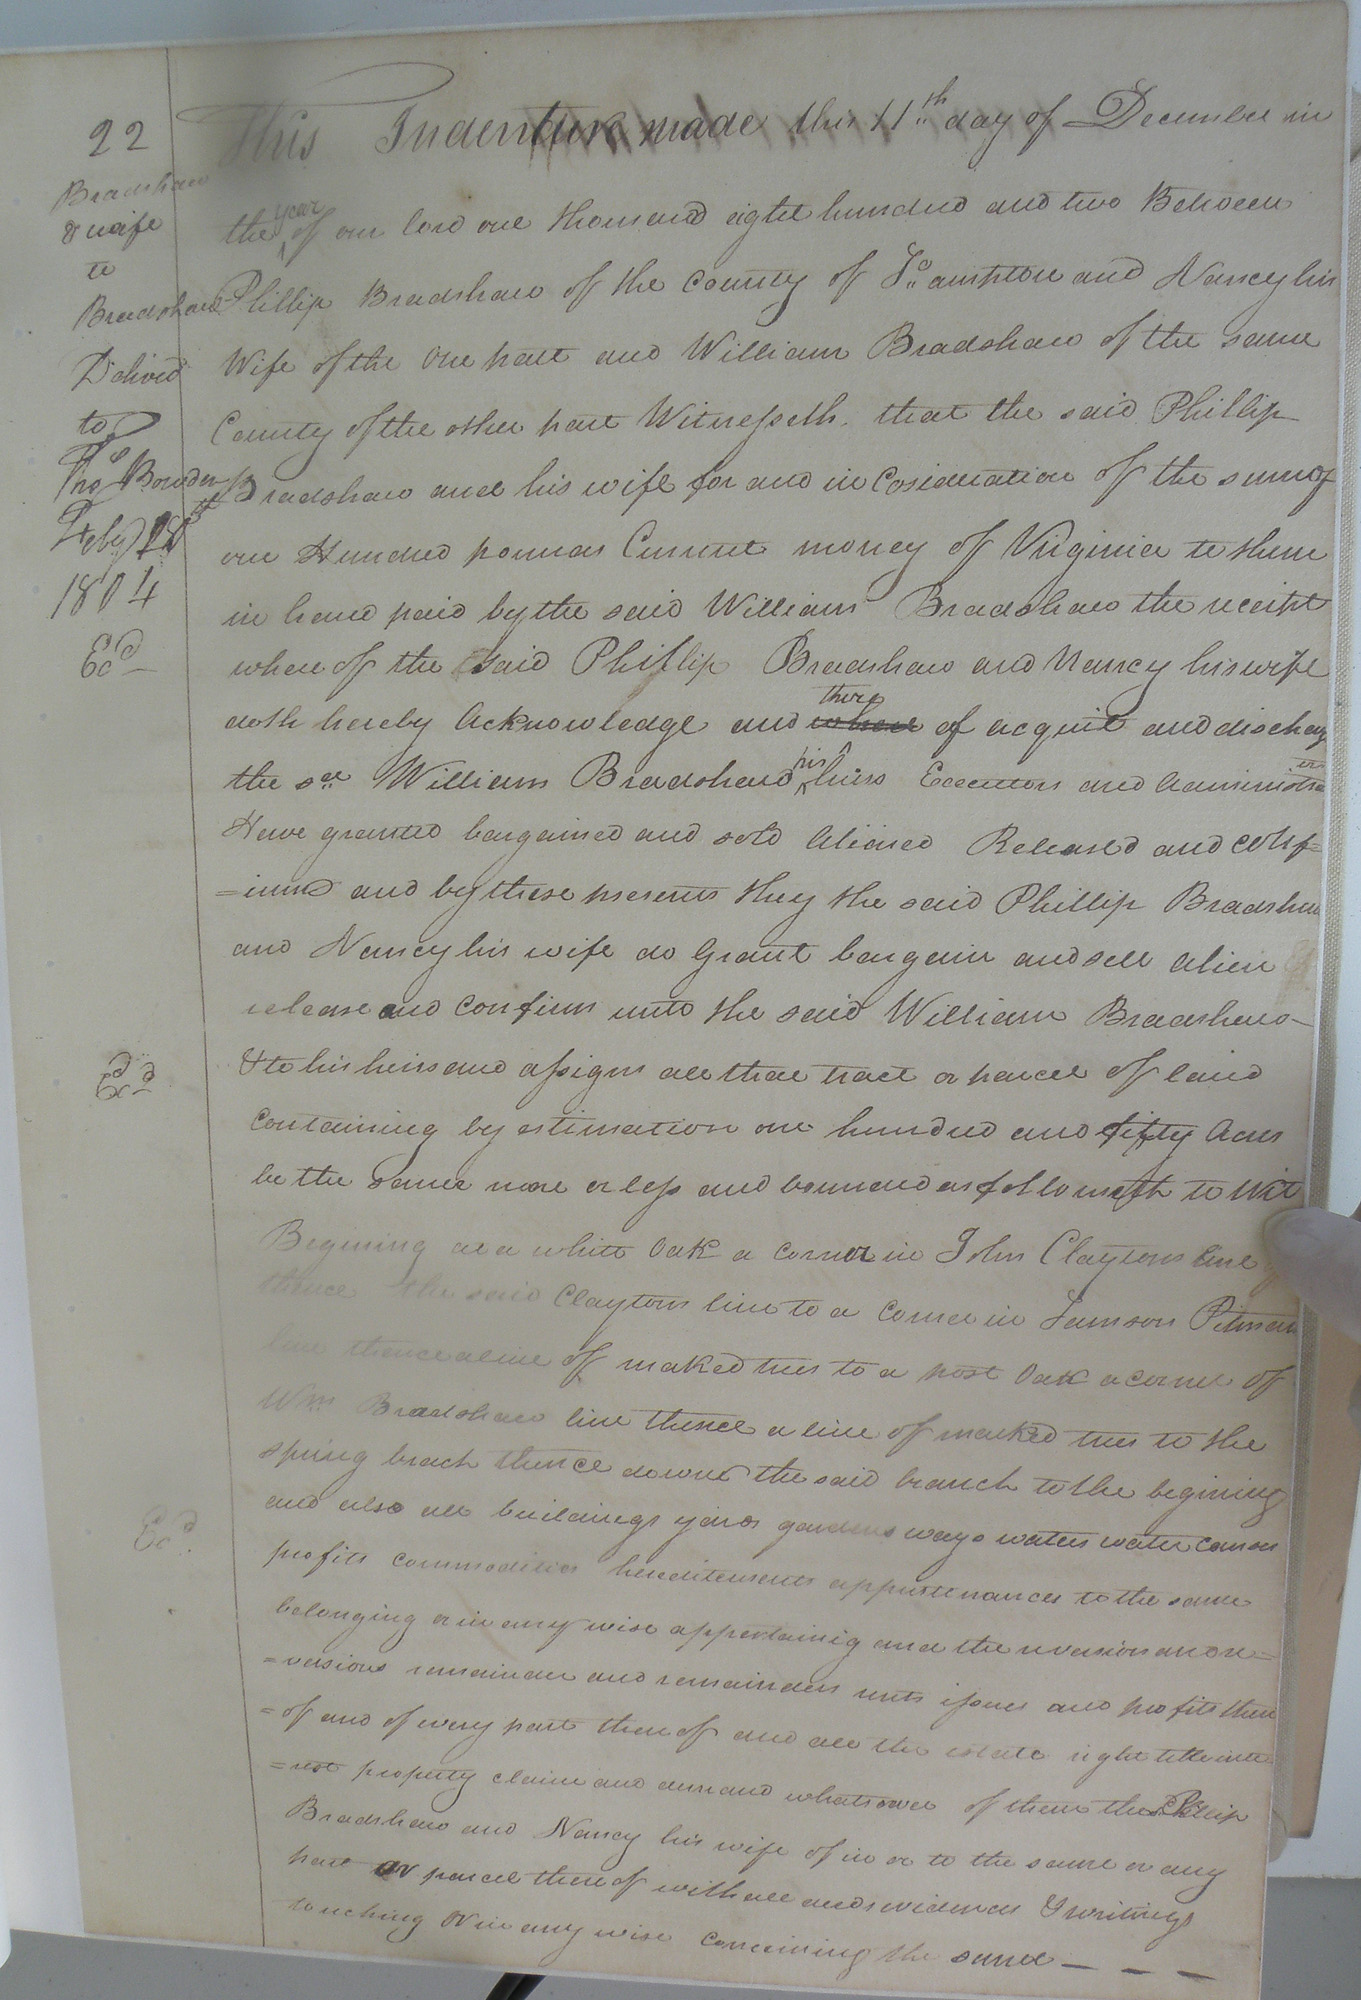 22
Bradshaw
& wife
to
Bradshaw
Delived
to
Thos Bowden
Feby 28th
1804
Exd
Exd
Exd
This Indenture made this 11th day of December in
the year of our lord one thousand eight hundred and two Between
Phillip Bradshaw of the County of So. ampton and Nancy his
Wife of the One part and William Bradshaw of the same
County of the other part Witnesseth. that the said Phillip
Bradshaw and his wife for and in Cosideration of the sum of
one Hundred pounds Current money of Virginia to them
in hand paid by the said William Bradshaw the receipt
where of the said Phillip Bradshaw and Nancy his wife
doth hereby Acknowledge and there of acquit and discharge
the sd William Bradshaw his heirs Executors and Administrators
Have granted bargained and sold Aliened Released and conf=
=irmd and by these presents they the said Phillip Bradshaw
and Nancy his wife do Grant bargain and sell Alien
release and confirm unto the said William Bradshaw
& to his heirs and assigns all that tract or parcel of land
Containing by estimation one hundred and fifty Acres
be the same more or less and bounded as followeth to Wit
Begining at a white Oak a corner in John Claytons line
thence the said Claytons line to a Corner in Samson Pitman
line thence a line of maked trees to a post Oak a corner of
Wm Bradshaw line thence a line of marked trees to the
spring brach thence down the said branch to the begining
and also all buildings yards gardens ways waters water Corses
profits commodities hereditements appurtenances to the same
belonging or in any wise appertainig and the reversion and re=
=versions remainder and remainders rents issues and profits there
=of and of every part there of and all the estate right title inte
=rest property claim and demand whatsoever of them the sd Phillip
Bradshaw and Nancy his wife of in or to the same or any
part or parcel there of with all deeds evidences & writings
touching or in any wise concerning the same — — —